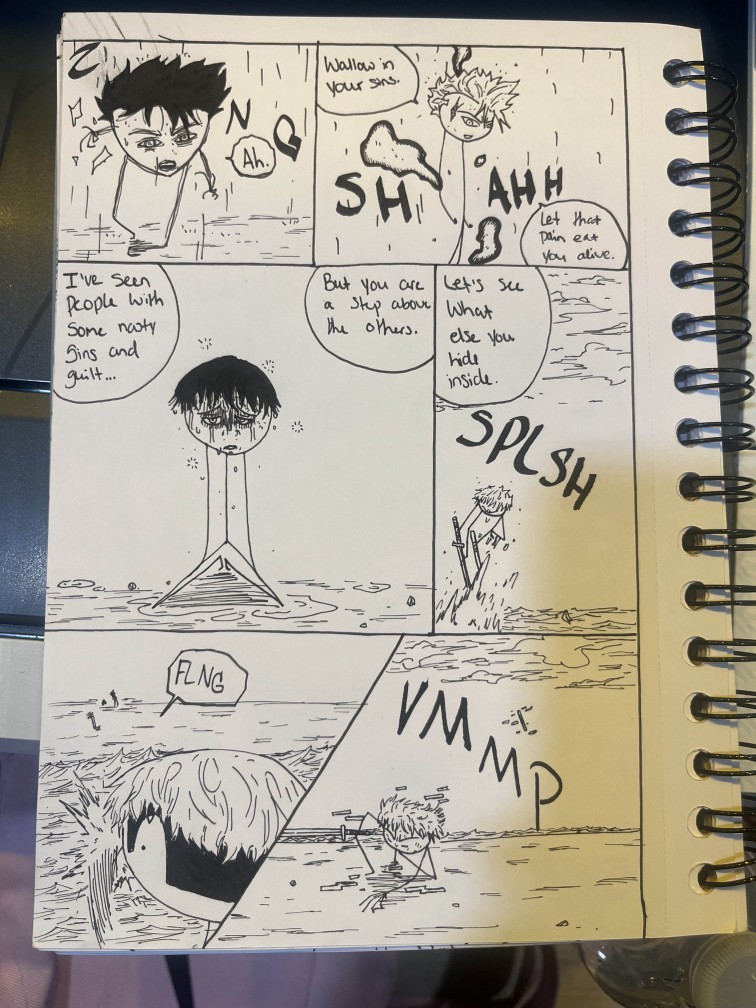 N
Ah.
Wallow in
your sins.
SH
AHHH
Let that
pain eat
you alive.
I've seen
people with
some nasty
sins and
guilt...
But you are
a step above
the others.
Let's see
What
else you
hide
inside.
SPLSH
FLNG
VMMMP